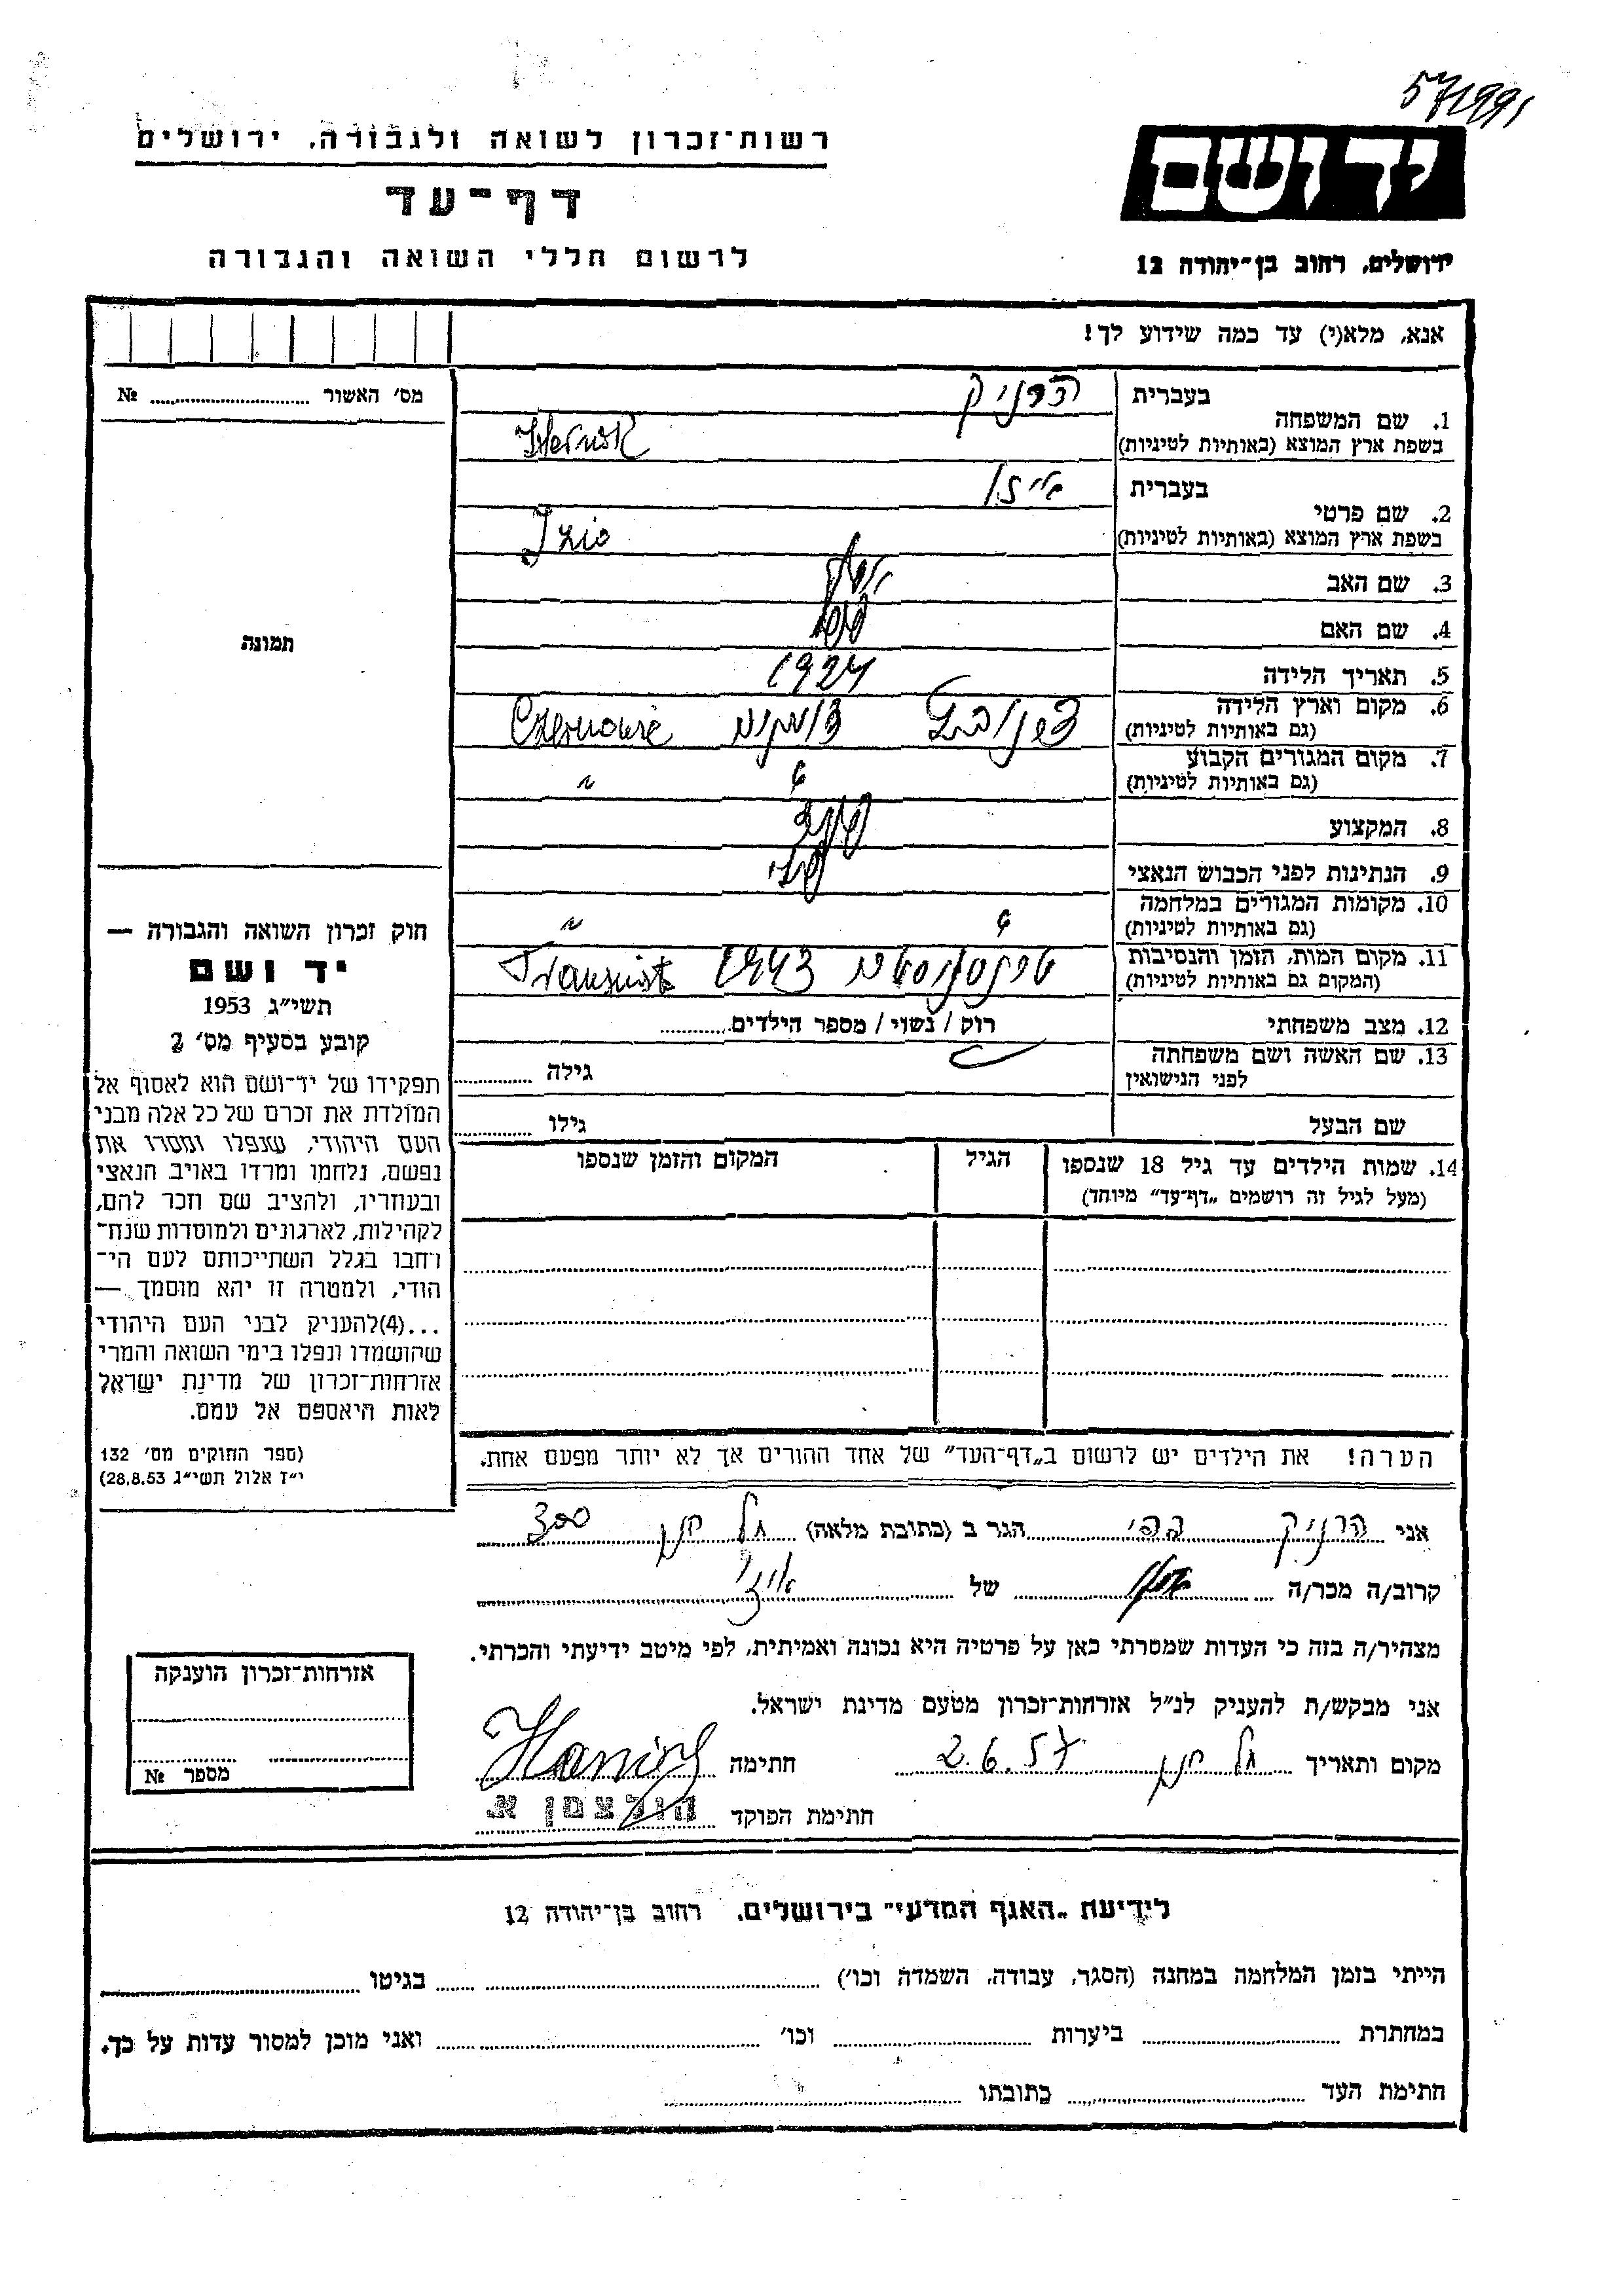 571991
רשות־זכרון לשואה ולגבורה, ירושלים
דף־עד
לרשום חללי השואה והגבורה
ידושם
ירושלים, רחוב בן־יהודה 12
אנא, מלא(י) עד כמה שידוע לך!
מס׳ האשור №
תמונה
1. שם המשפחה בעברית הרניק
בשפת ארץ המוצא (באותיות לטיניות)
2. שם פרטי בעברית
בשפת ארץ המוצא (באותיות לטיניות) Izio
3. שם האב
4. שם האם
5. תאריך הלידה 1924
6. מקום וארץ הלידה
(גם באותיות לטיניות)
7. מקום המגורים הקבוע " "
(גם באותיות לטיניות)
8. המקצוע
9. הנתינות לפני הכבוש הנאצי
10. מקומות המגורים במלחמה " "
(גם באותיות לטיניות)
11. מקום המות, הזמן והנסיבות 1943
(המקום גם באותיות לטיניות)
12. מצב משפחתי רוק / נשוי / מספר הילדים
13. שם האשה ושם משפחתה גילה
לפני הנישואין
שם הבעל גילו
14. שמות הילדים עד גיל 18 שנספו הגיל המקום והזמן שנספו
(מעל לגיל זה רושמים „דף־עד״ מיוחד)
חוק זכרון השואה והגבורה —
יד ושם
תשי״ג 1953
קובע בסעיף מס׳ 2
תפקידו של יד־ושם הוא לאסוף אל
המולדת את זכרם של כל אלה מבני
העם היהודי, שנפלו ומסרו את
נפשם, נלחמו ומרדו באויב הנאצי
ובעוזריו, ולהציב שם וזכר להם,
לקהילות, לארגונים ולמוסדות שנח־
רחבו בגלל השתייכותם לעם הי־
הודי, ולמטרה זו יהא מוסמך —
...(4)להעניק לבני העם היהודי
שהושמדו ונפלו בימי השואה והמרי
אזרחות־זכרון של מדינת ישראל
לאות היאספם אל עמם.
(ספר החוקים מס׳ 132
י״ז אלול תשי״ג 28.8.53)
הערה! את הילדים יש לרשום ב„דף־העד״ של אחד ההורים אך לא יותר מפעם אחת.
אני הרניק הגר ב (כתובת מלאה) 300
קרוב/ה מכר/ה של
מצהיר/ה בזה כי העדות שמסרתי כאן על פרטיה היא נכונה ואמיתית, לפי מיטב ידיעתי והכרתי.
אני מבקש/ת להעניק לנ״ל אזרחות־זכרון מטעם מדינת ישראל.
מקום ותאריך 2.6.57 חתימה
חתימת הפוקד הולצמן א.
אזרחות־זכרון הוענקה
מספר №
לידיעת „האגף המדעי״ בירושלים, רחוב בן־יהודה 12
הייתי בזמן המלחמה במחנה (הסגר, עבודה, השמדה וכו׳) בגיטו
במחתרת ביערות וכו׳ ואני מוכן למסור עדות על כך.
חתימת העד כתובתו